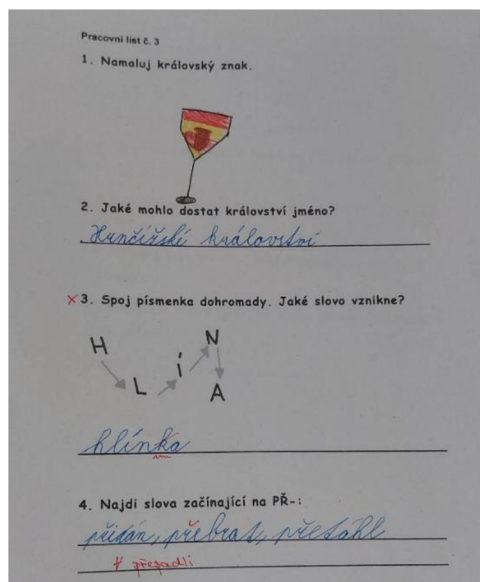 Pracovní list č. 3
1. Namaluj královský znak.
2. Jaké mohlo dostat království jméno?
království
× 3. Spoj písmenka dohromady. Jaké slovo vznikne?
H L Í N A
hlínka
4. Najdi slova začínající na PŘ-:
přidán, přebrat, přetáhl
přepadli